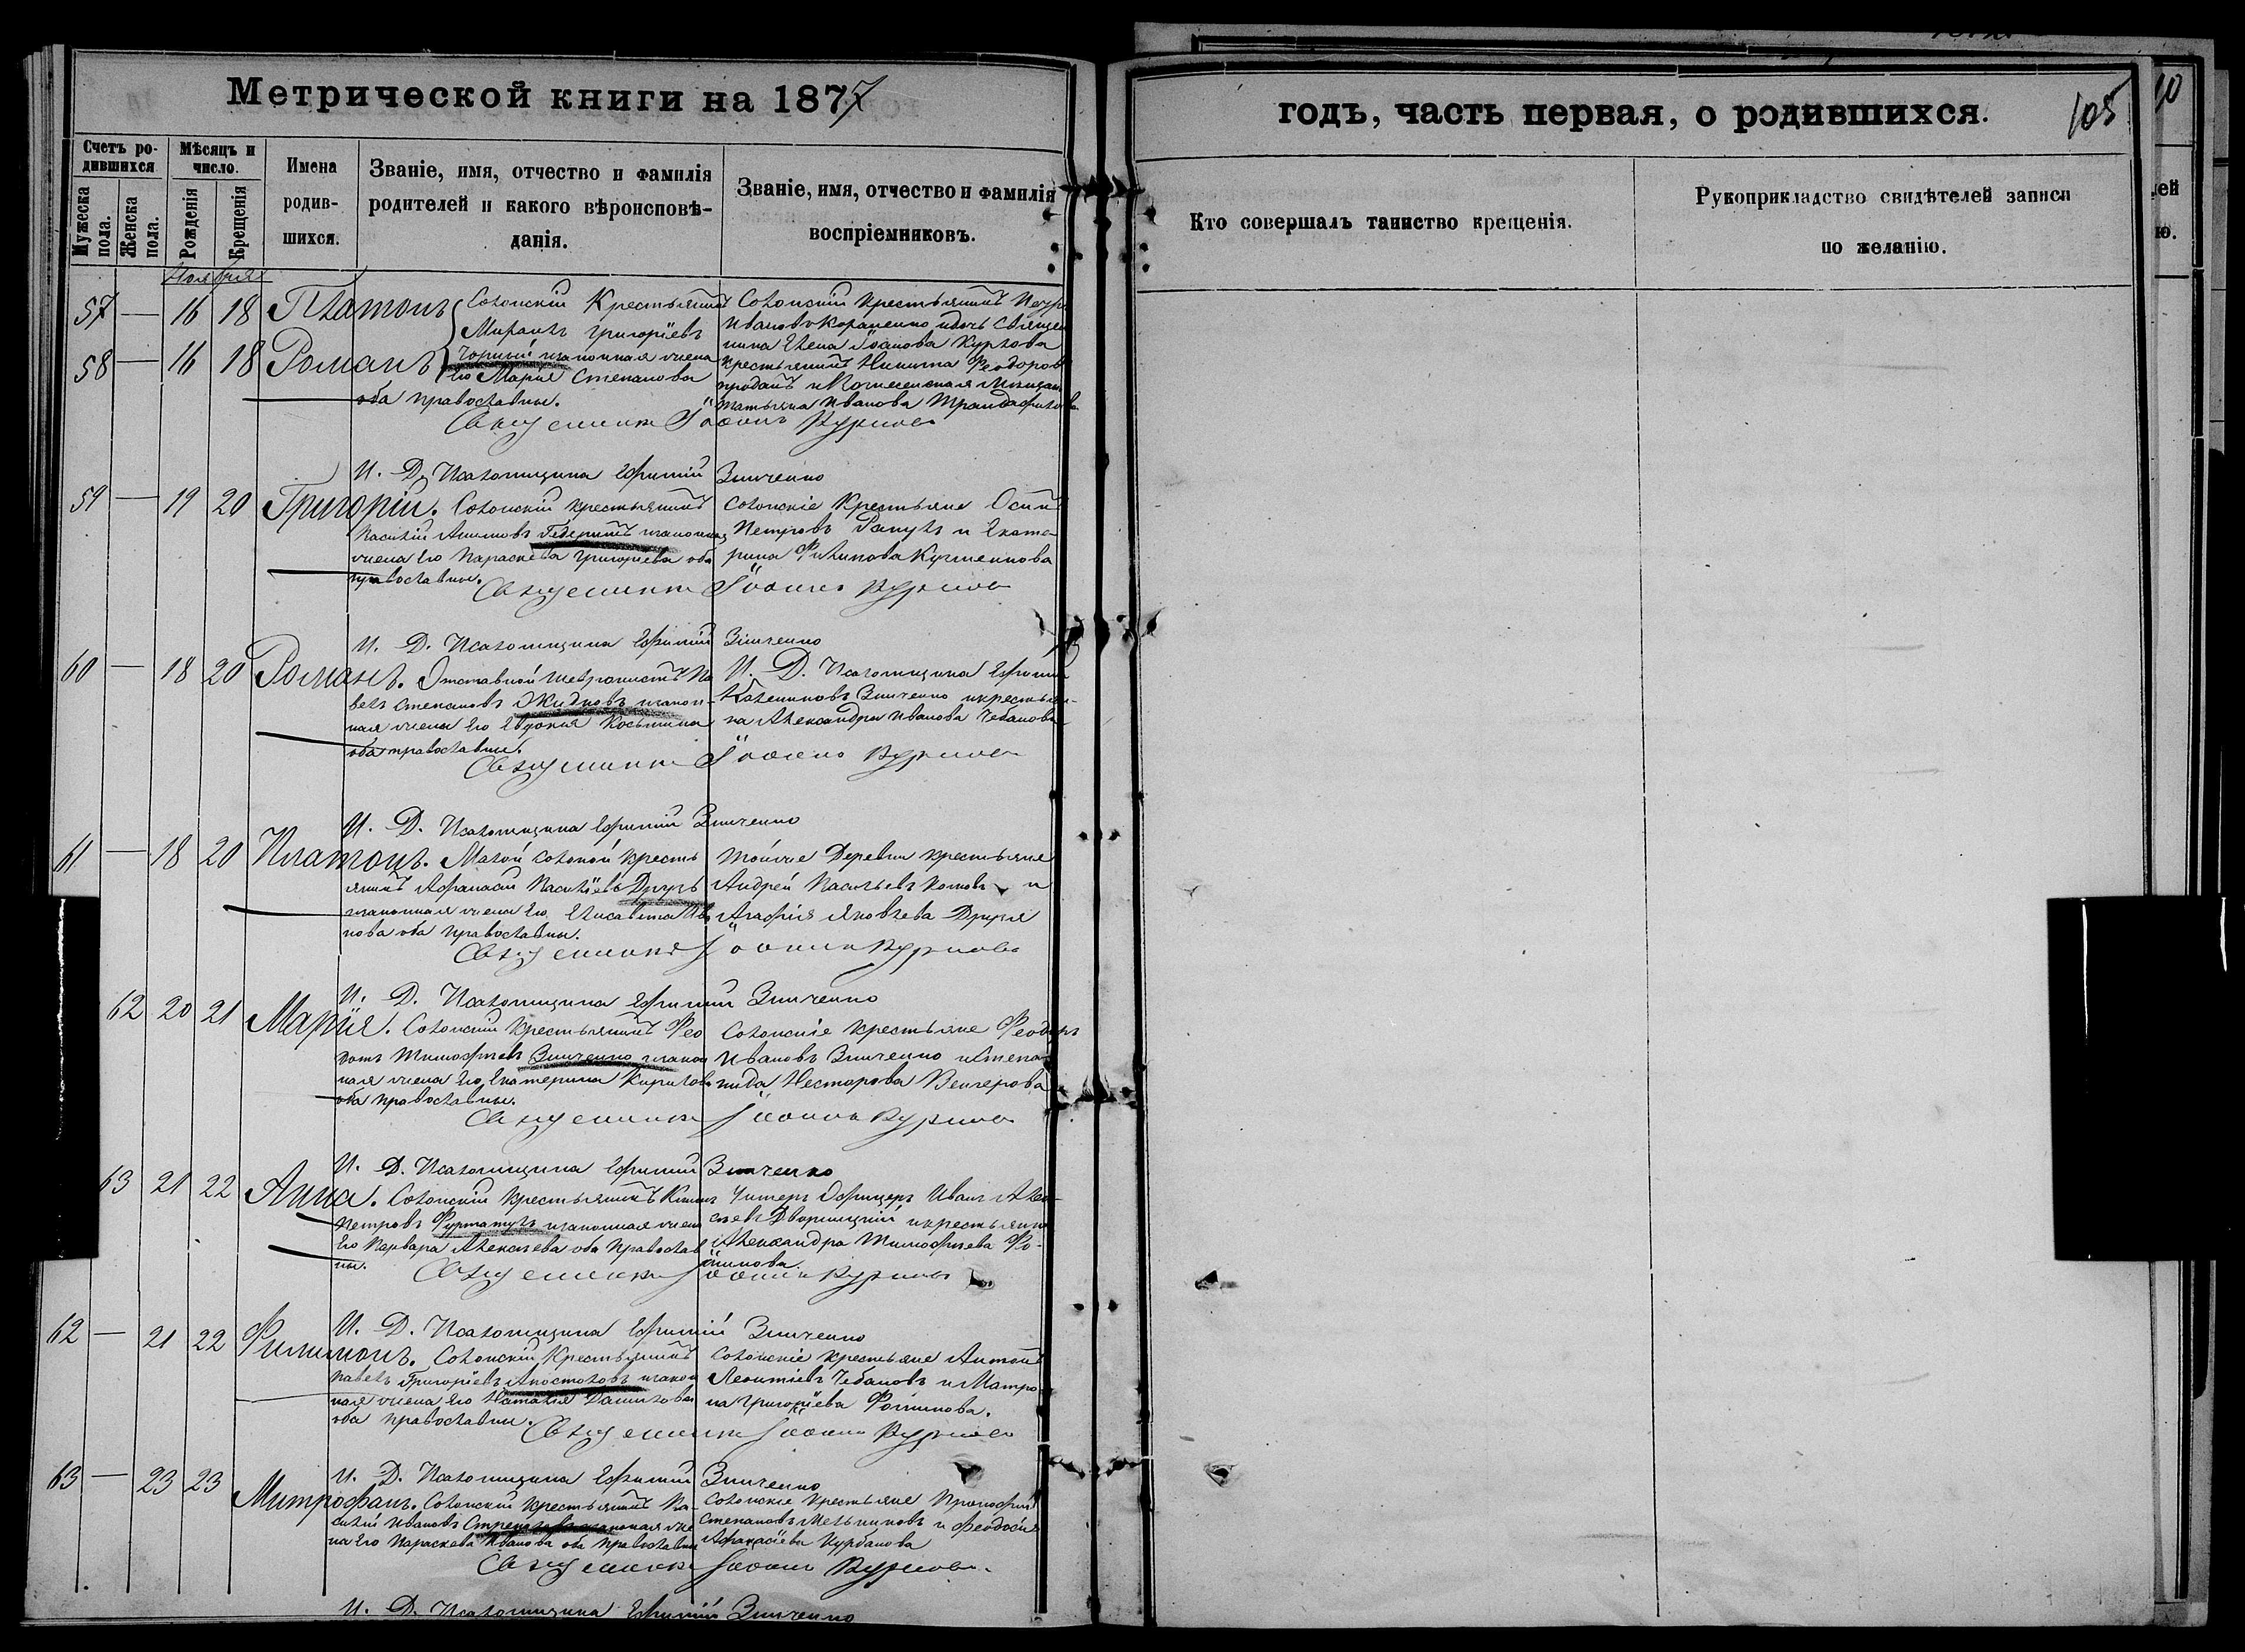 Метрической книги на 1877
годъ, часть первая, о родившихся.
105
Счетъ родившихся
Мѣсяцъ и число.
Имена родившихся.
Званіе, имя, отчество и фамилія родителей и какого вѣроисповѣданія.
Званіе, имя, отчество и фамилія воспріемниковъ.
Кто совершалъ таинство крещенія.
Рукоприкладство свидѣтелей записи по желанію.
Мужеска пола.
Женска пола.
Рожденія
Крещенія
Ноября
57 — 16 18 Платонъ
58 — 16 18 Романъ
Солонскій Крестьянинъ
Михаилъ Григоріевъ
Чорный законная жена
его Марія Степанова
оба православны.
Солонскій крестьянинъ Петръ
Ивановъ Кораненко и дочь Священ
ника Елена Іоанова Курлова
крестьянинъ Никита Феодоров
Татьяна Иванова
Священникъ Іоаннъ Курловъ
И. Д. Псаломщика Ефимій Зинченко
59 — 19 20 Григорій. Солонскій крестьянинъ
Василій законная
жена его Параскева Григорьева оба
православны.
Солонскіе Крестьяне Осипъ
Петровъ и Екате-
рина Филипова
Священникъ Іоаннъ Курловъ
И. Д. Псаломщика Ефимій Зинченко
60 — 18 20 Романъ. Отставной Па
велъ Степановъ Жидковъ закон-
ная жена его Евдокія Косьмина
оба православны.
И. Д. Псаломщика Ефимій
Зинченко и крестьян-
ка Александра Иванова Чебанова
Священникъ Іоаннъ Курловъ
И. Д. Псаломщика Ефимій Зинченко
61 — 18 20 Платонъ. Малой Солоной кресть
янинъ Афанасій Василіевъ Друзь
законная жена его Елисавета Ива
нова оба православны.
Тойже Деревни крестьяне
Андрей Васильевъ и
Агафія Яковлева Друзя
Священникъ Іоаннъ Курловъ
И. Д. Псаломщика Ефимій Зинченко
62 20 21 Марія. Солонскій крестьянинъ Фео
дотъ Тимофѣевъ Зинченко закон
ная жена его Екатерина Кирилова
оба православны.
Солонскіе крестьяне Феодоръ
Ивановъ Зинченко и Степа
нида Несторова Венгерова
Священникъ Іоаннъ Курловъ
И. Д. Псаломщика Ефимій Зинченко
63 21 22 Анна. Солонскій крестьянинъ
Петровъ Фуртатулъ законная жена
его Варвара Алексѣева оба православ
ны.
Унтеръ Офицеръ Иванъ Алек-
сѣевъ Дворницкій и крестьянка
Александра Тимофѣева Фо-
минова.
Священникъ Іоаннъ Курловъ
И. Д. Псаломщика Ефимій Зинченко
62 — 21 22 Филимонъ. Солонскій Крестьянинъ
Павелъ Григоріевъ Апостоловъ закон
ная жена его Наталія Данилова
оба православны.
Солонскіе крестьяне Антонъ
Леонтіевъ Чебановъ и Матро
на Григоріева Фоминова.
Священникъ Іоаннъ Курловъ
И. Д. Псаломщика Ефимій Зинченко
63 — 23 23 Митрофанъ. Солонскій крестьянинъ Ва-
силій Ивановъ законная же
на его Параскева Иванова оба православны
Солонскіе крестьяне Прокофій
Степановъ Мельниковъ и Феодосія
Афанасіева Курбанова
Священникъ Іоаннъ Курловъ.
И. Д. Псаломщика Ефимій Зинченко